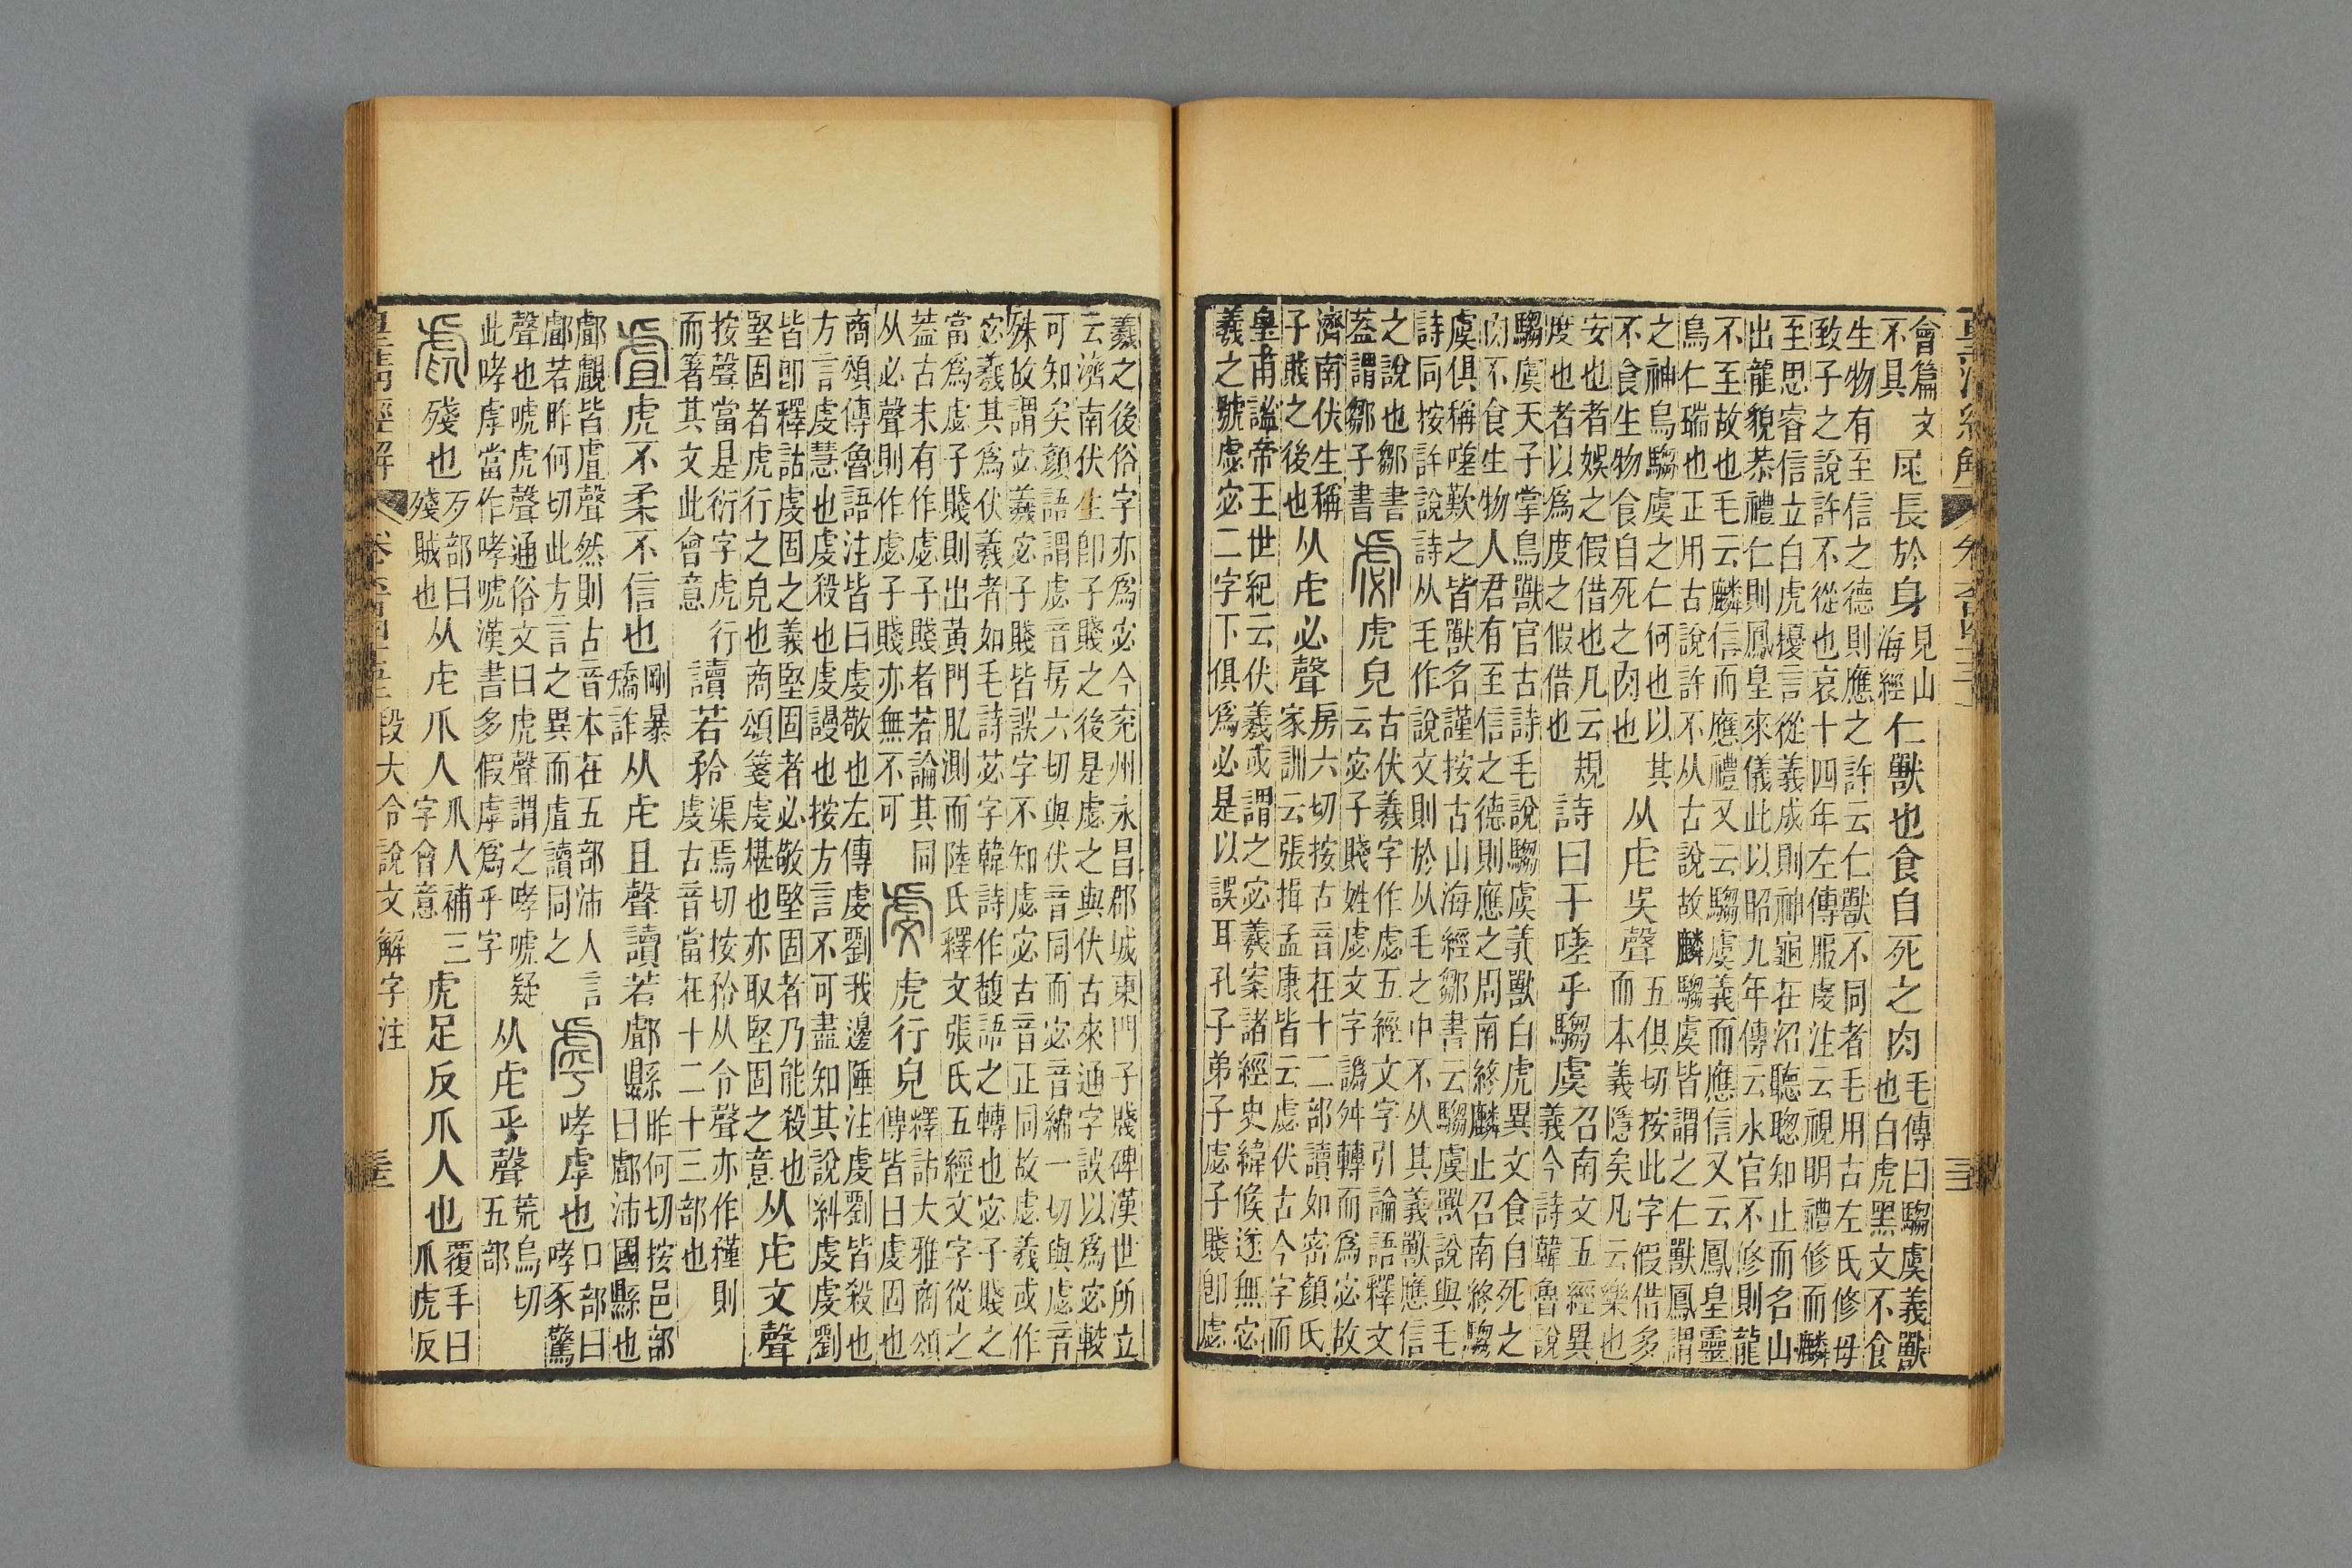 會篇文
不具
尾長於身
見山
海經
仁獸也食自死之肉
毛傳曰騶虞義獸
也白虎黑文不食
生物有至信之德則應之許云仁獸不同者毛用古左氏修母
致子之說許不從也哀十四年左傳服虔注云視明禮修而麟
至思睿信立白虎擾言從義成則神龜在沼聽聰知止而名山
出龍貌恭禮仁則鳳皇來儀此以昭九年傳云水官不修則龍
不至故也毛云麟信而應禮又云騶虞義而應信又云鳳皇靈
鳥仁瑞也正用古說許不从古說故麟騶虞皆謂之仁獸鳳謂
之神鳥騶虞之仁何也以其
不食生物食自死之肉也
从虍吳聲
五俱切按此字假借多
而本義隱矣凡云樂也
安也者娛之假借也凡云規
度也者以爲度之假借也
詩曰于嗟乎騶虞
召南文五經異
義今詩韓魯說
騶虞天子掌鳥獸官古詩毛說騶虞義獸白虎異文食自死之
肉不食生物人君有至信之德則應之周南終麟止召南終騶
虞俱稱嗟歎之皆獸名謹按古山海經鄒書云騶虞獸說與毛
詩同按許說詩从毛作說文則於从毛之中不从其義獸應信
之說也鄒書
蓋謂鄒子書
虙
虎皃
古伏羲字作虙五經文字引論語釋文
云宓子賤姓虙文字譌舛轉而爲宓故
濟南伏生稱
子賤之後也
从虍必聲
房六切按古音在十二部讀如密顏氏
家訓云張揖孟康皆云虙伏古今字而
皇甫謐帝王世紀云伏羲或謂之宓羲案諸經史緯候遂無宓
羲之號虙宓二字下俱爲必是以誤耳孔子弟子虙子賤卽虙
羲之後俗字亦爲宓今兗州永昌郡城東門子賤碑漢世所立
云濟南伏生卽子賤之後是虙之與伏古來通字誤以爲宓較
可知矣顏語謂虙音房六切與伏音同而宓音緜一切與虙音
殊故謂宓羲宓子賤皆誤字不知虙宓古音正同故虙羲或作
宓羲其爲伏羲者如毛詩苾字韓詩作馥語之轉也宓子賤之
當爲虙子賤則出黃門肊測而陸氏釋文張氏五經文字從之
蓋古未有作虙子賤者若論其同
从必聲則作虙子賤亦無不可
虔
虎行皃
釋詁大雅商頌
傳皆曰虔固也
商頌傳魯語注皆曰虔敬也左傳虔劉我邊陲注虔劉皆殺也
方言虔慧也虔殺也虔謾也按方言不可盡知其說糾虔虔劉
皆卽釋詁虔固之義堅固者必敬堅固者乃能殺也
堅固者虎行之皃也商頌箋虔椹也亦取堅固之意
从虍文聲
按聲當是衍字虎行
而著其文此會意
讀若矜
渠焉切按矜从令聲亦作㮚則
虔古音當在十二十三部也
虘
虎不柔不信也
剛暴
矯詐
从虍且聲讀若䣜縣
昨何切按邑部
曰䣜沛國縣也
䣜覰皆虘聲然則古音本在五部沛人言
䣜若昨何切此方言之異而虘讀同之
虖
哮虖也
口部曰
哮豕驚
聲也唬虎聲通俗文曰虎聲謂之哮唬疑
此哮虖當作哮唬漢書多假虖爲乎字
从虍乎聲
荒烏切
五部
虐
殘也
歺部曰
殘賊也
从虍爪人
爪人補三
字會意
虎足反爪人也
覆手曰
爪虎反
皇清經解
段大令說文解字注